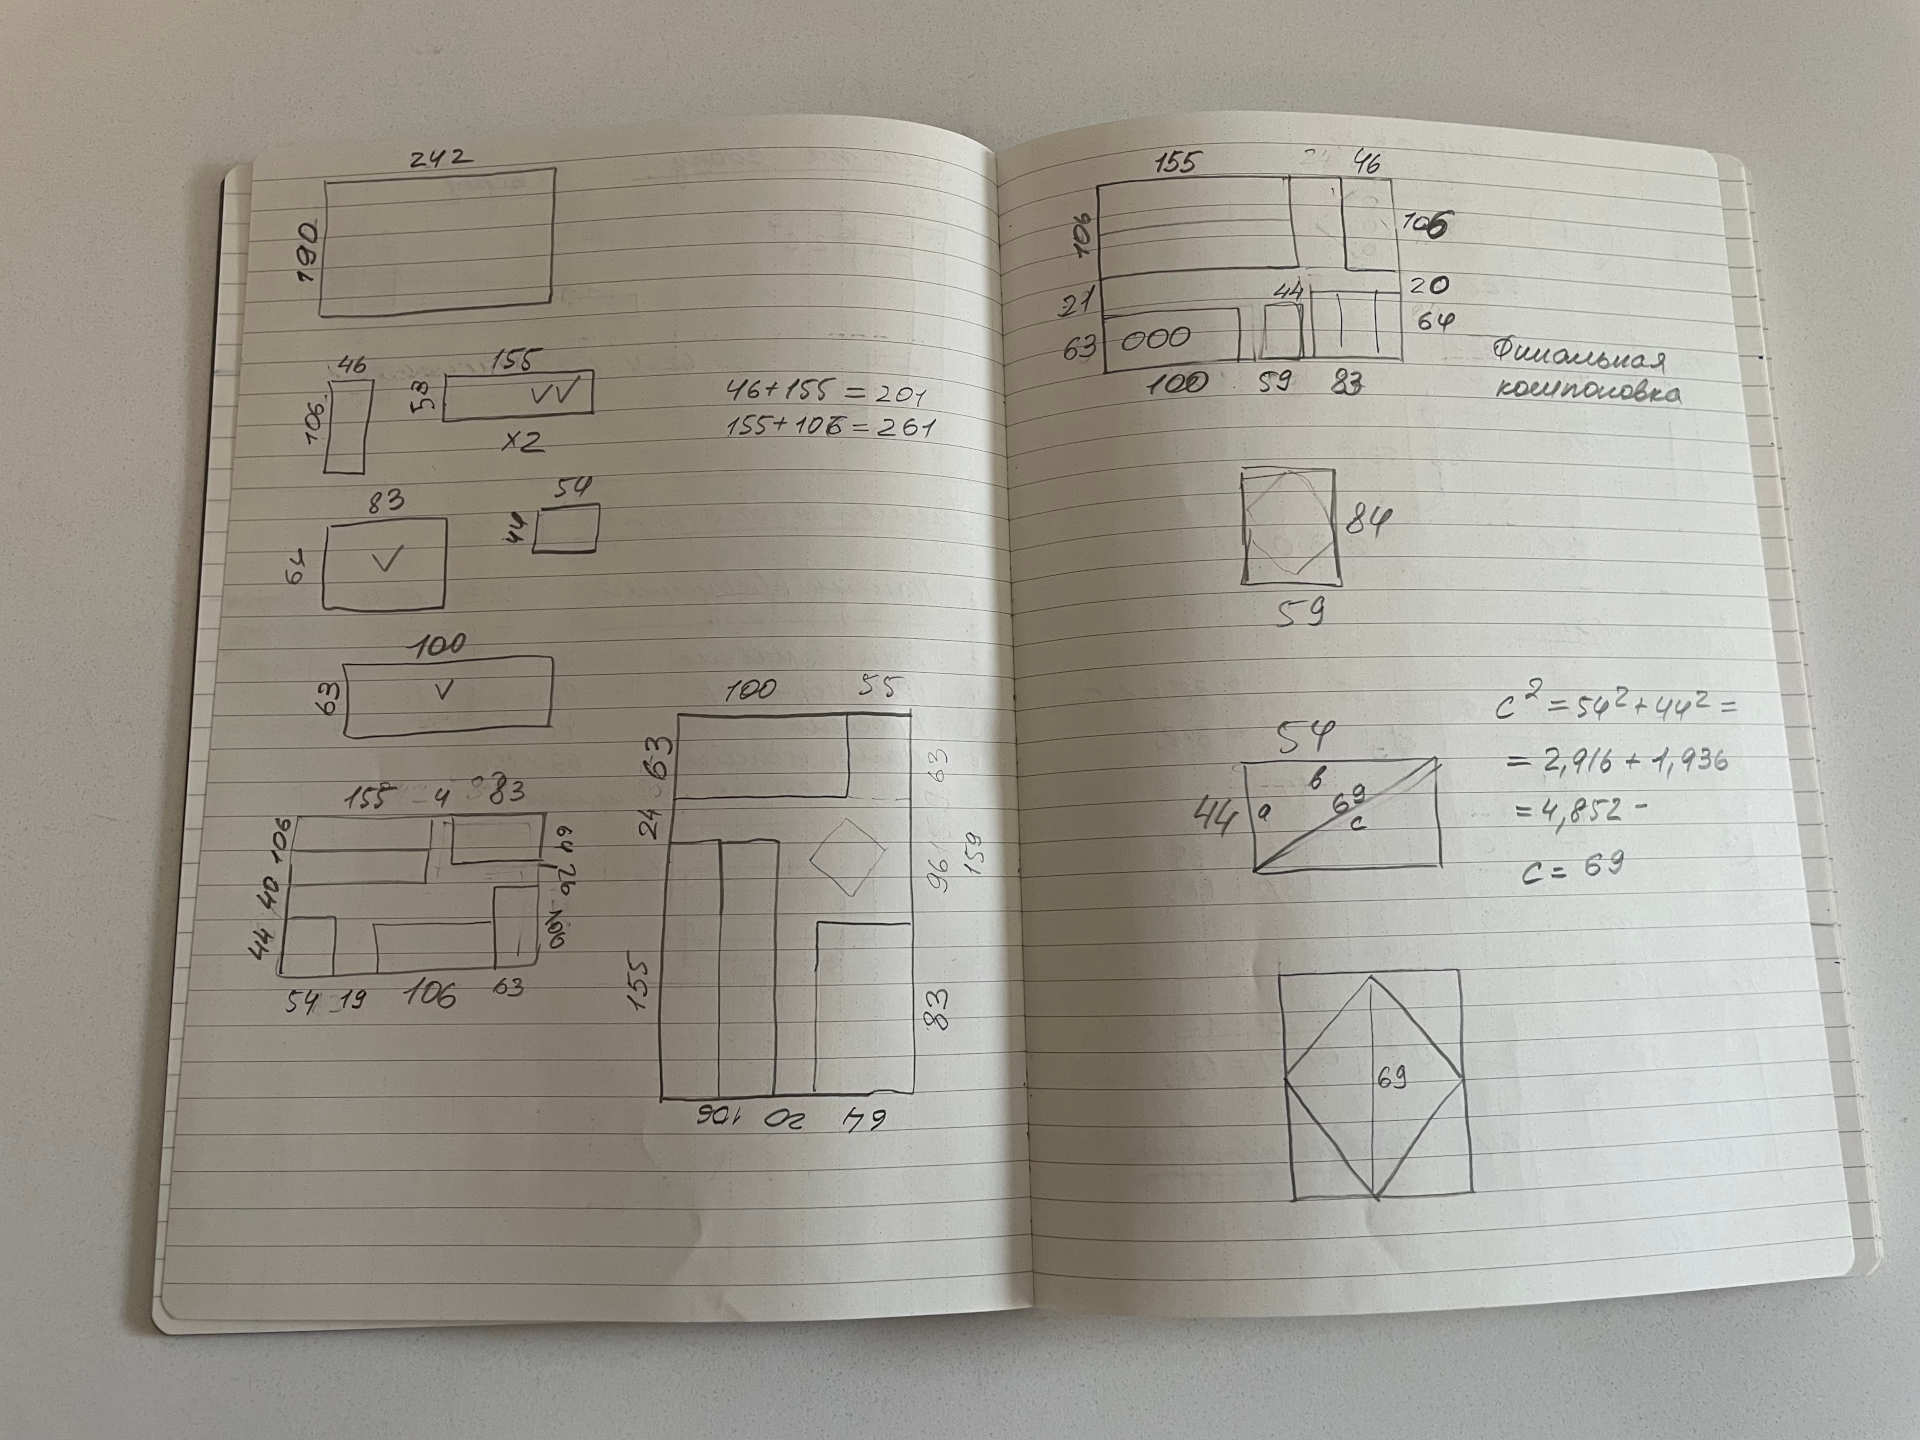 242
190
46
155
106
53
x2
46+155=201
155+106=261
83
54
64
44
100
63
155 4 83
106
40
44
64
26
100
54 19 106 63
100 55
63
24
155
63
96
159
83
106 20 64
155 46
106
106
21
44
20
63
64
100 59 83
Финальная
компоновка
84
59
54
44
a
b
69
c
c²=54²+44²=
=2,916+1,936
=4,852-
c=69
69